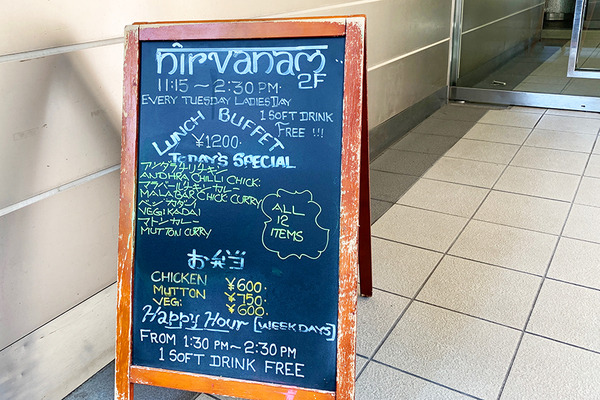 nirvanam
2F
11:15 ~ 2:30 PM.
EVERY TUESDAY LADIES DAY
1 SOFT DRINK
FREE !!!
LUNCH BUFFET
¥1200.
TODAY'S SPECIAL
アンダラチリチキン
ANDHRA CHILLI CHICK:
マラバールチキンカレー
MALABAR CHICK CURRY
ベジカダイ
VEG KADAI
マトンカレー
MUTTON CURRY
ALL
12
ITEMS
お弁当
CHICKEN ¥600.
MUTTON ¥750.
VEG: ¥600.
Happy Hour [WEEKDAYS]
FROM 1:30 PM ~ 2:30 PM
1 SOFT DRINK FREE